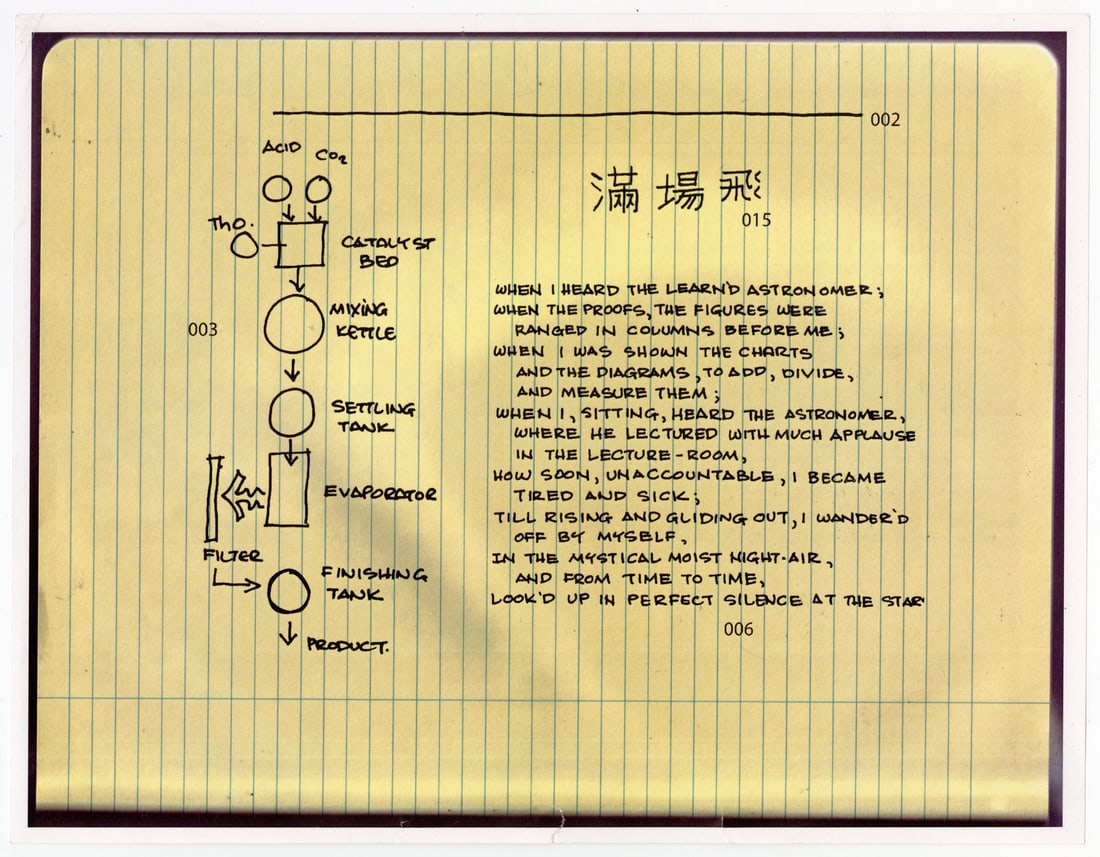 002
ACID
CO2
ThO.
CATALYST
BED
003
MIXING
KETTLE
SETTLING
TANK
EVAPORATOR
FILTER
FINISHING
TANK
PRODUCT.
滿場飛
015
WHEN I HEARD THE LEARN'D ASTRONOMER;
WHEN THE PROOFS, THE FIGURES WERE
RANGED IN COLUMNS BEFORE ME;
WHEN I WAS SHOWN THE CHARTS
AND THE DIAGRAMS, TO ADD, DIVIDE,
AND MEASURE THEM;
WHEN I, SITTING, HEARD THE ASTRONOMER,
WHERE HE LECTURED WITH MUCH APPLAUSE
IN THE LECTURE-ROOM,
HOW SOON, UNACCOUNTABLE, I BECAME
TIRED AND SICK;
TILL RISING AND GLIDING OUT, I WANDER'D
OFF BY MYSELF,
IN THE MYSTICAL MOIST NIGHT-AIR,
AND FROM TIME TO TIME,
LOOK'D UP IN PERFECT SILENCE AT THE STAR
006